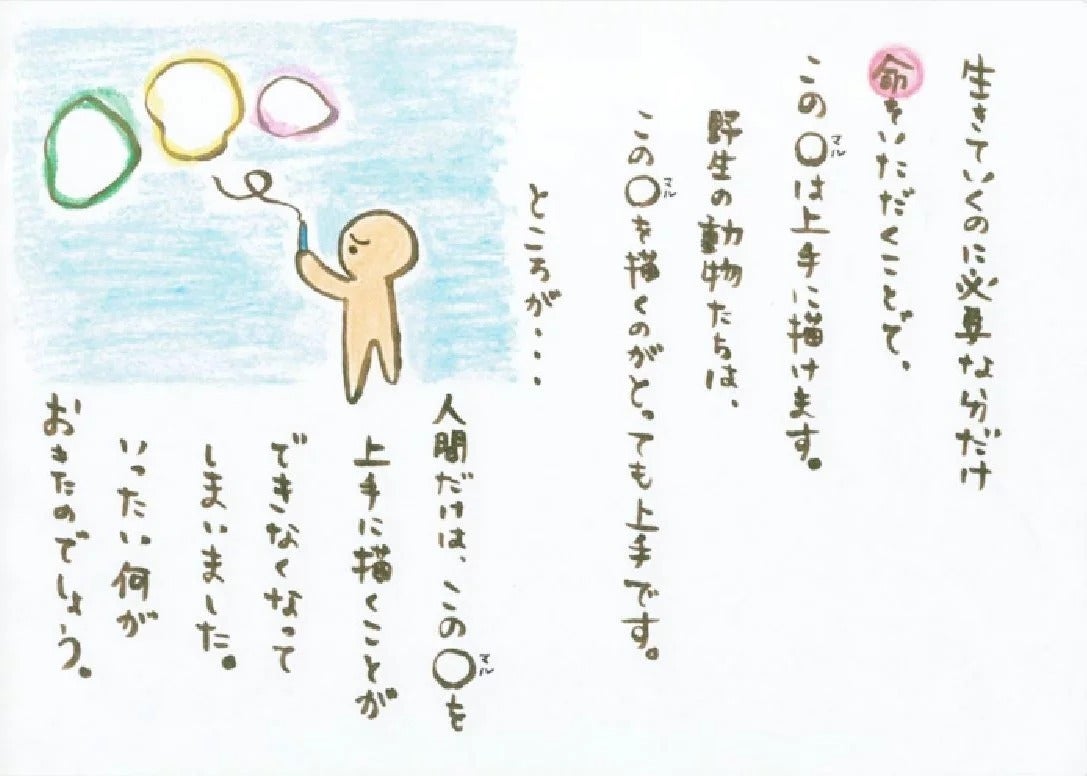 生きていくのに必要な分だけ
命をいただくことで、
この〇は上手に描けます。
野生の動物たちは、
この〇を描くのがとっても上手です。
ところが・・・・
人間だけは、この〇を
上手に描くことが
できなくなって
しまいました。
いったい何が
おきたのでしょう。
マル
マル
マル